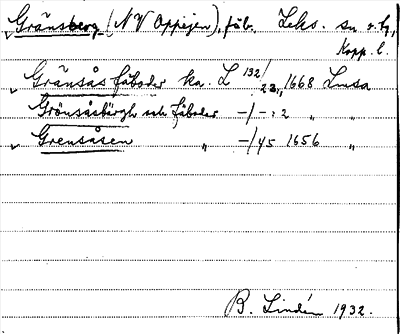 Gränsberg (NV Oppejen), fäb. Leks. sn o. tg,
Kopp. l.
Gränsås fäboder ka. L 132/22, 1668 Lmsa
Grönsåsbärgh och fäboder -/-:2 " "
Grensåsen " -/45 1656 "
B. Lindén 1932.